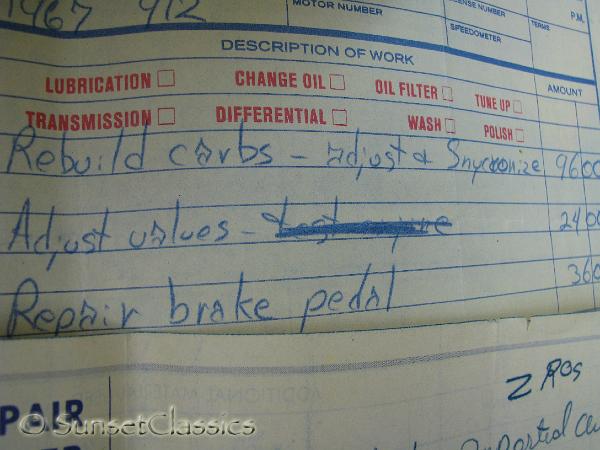 1967 912
MOTOR NUMBER
LICENSE NUMBER
SPEEDOMETER
TERMS
P.M.
DESCRIPTION OF WORK
AMOUNT
LUBRICATION CHANGE OIL OIL FILTER TUNE UP
TRANSMISSION DIFFERENTIAL WASH POLISH
Rebuild carbs - adjust & Snycronize 96 00
Adjust valves - 24 00
Repair brake pedal 36 0
ADDITIONAL
2 Ros
PAIR
© SunsetClassics